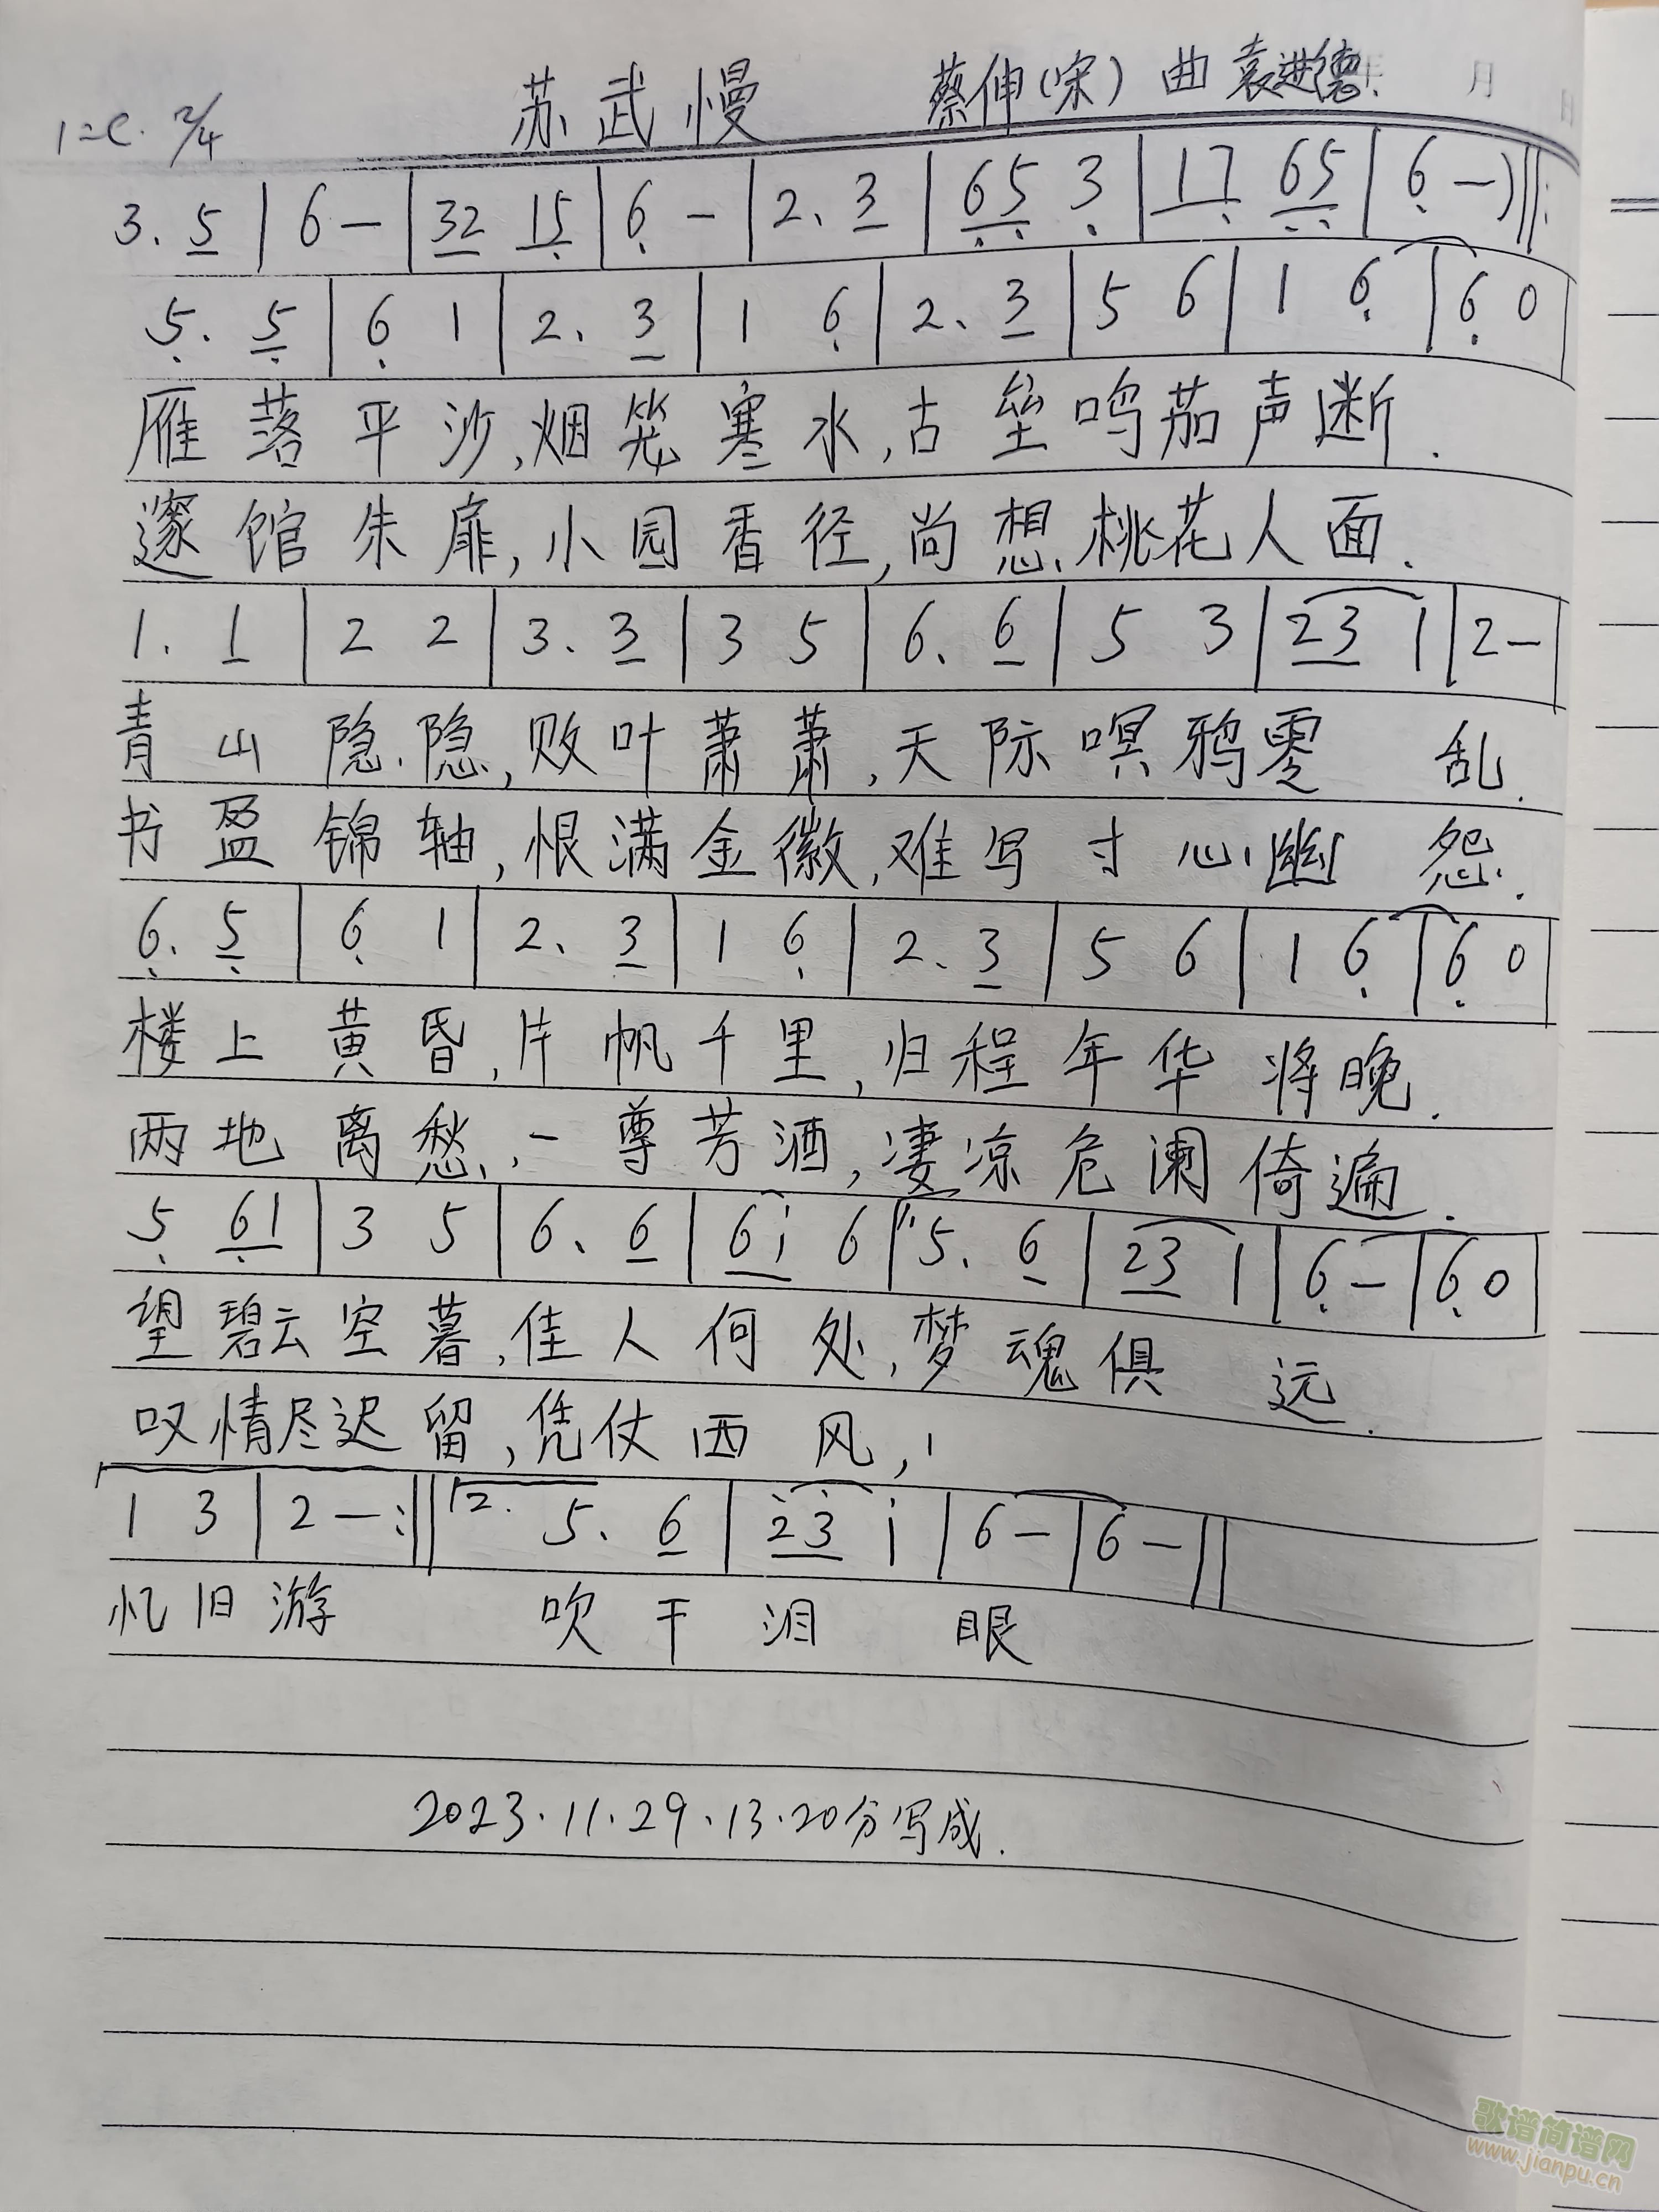 苏武慢 蔡伸(宋) 曲 袁进德 年 月 日
1=C. 2/4
3. 5 | 6 - | 32 15 | 6 - | 2. 3 | 65 3 | 17 65 | 6 -) ‖:
5. 5 | 6 1 | 2. 3 | 1 6 | 2. 3 | 5 6 | 1 6 | 6 0
雁落平沙,烟笼寒水,古垒鸣茄声断.
邃馆朱扉,小园香径,尚想桃花人面.
1. 1 | 2 2 | 3. 3 | 3 5 | 6. 6 | 5 3 | 23 1 | 2-
青山隐隐,败叶萧萧,天际暝鸦零乱.
书盈锦轴,恨满金徽,难写寸心幽怨.
6. 5 | 6 1 | 2. 3 | 1 6 | 2. 3 | 5 6 | 1 6 | 6 0
楼上黄昏,片帆千里,归程年华将晚.
两地离愁,一尊芳酒,凄凉危阑倚遍.
5 61 | 3 5 | 6. 6 | 6i 6 | 1. 5. 6 | 23 1 | 6 - | 6 0
望碧云空暮,佳人何处,梦魂俱远.
叹情尽迟留,凭仗西风,
1 3 | 2 - :‖ 2. 5. 6 | 23 i | 6 - | 6 - ‖
忆旧游 吹干泪眼
2023.11.29.13.20分写成.
歌谱简谱网
www.jianpu.cn